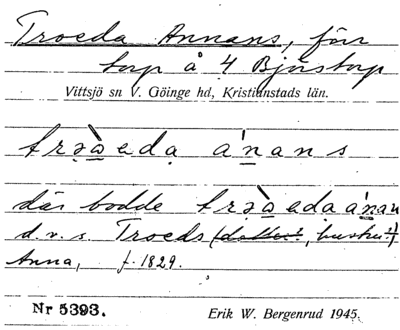 Troeda Annans, för
torp å 4 Bjärstorp
Vittsjö sn V. Göinge hd, Kristianstads län.
trə̀aeda ánans
där bodde trə̀aedaánan
d.v.s. Troeds (dotter?, hustru?)
Anna, f. 1829.
Nr 5393. Erik W. Bergenrud 1945.